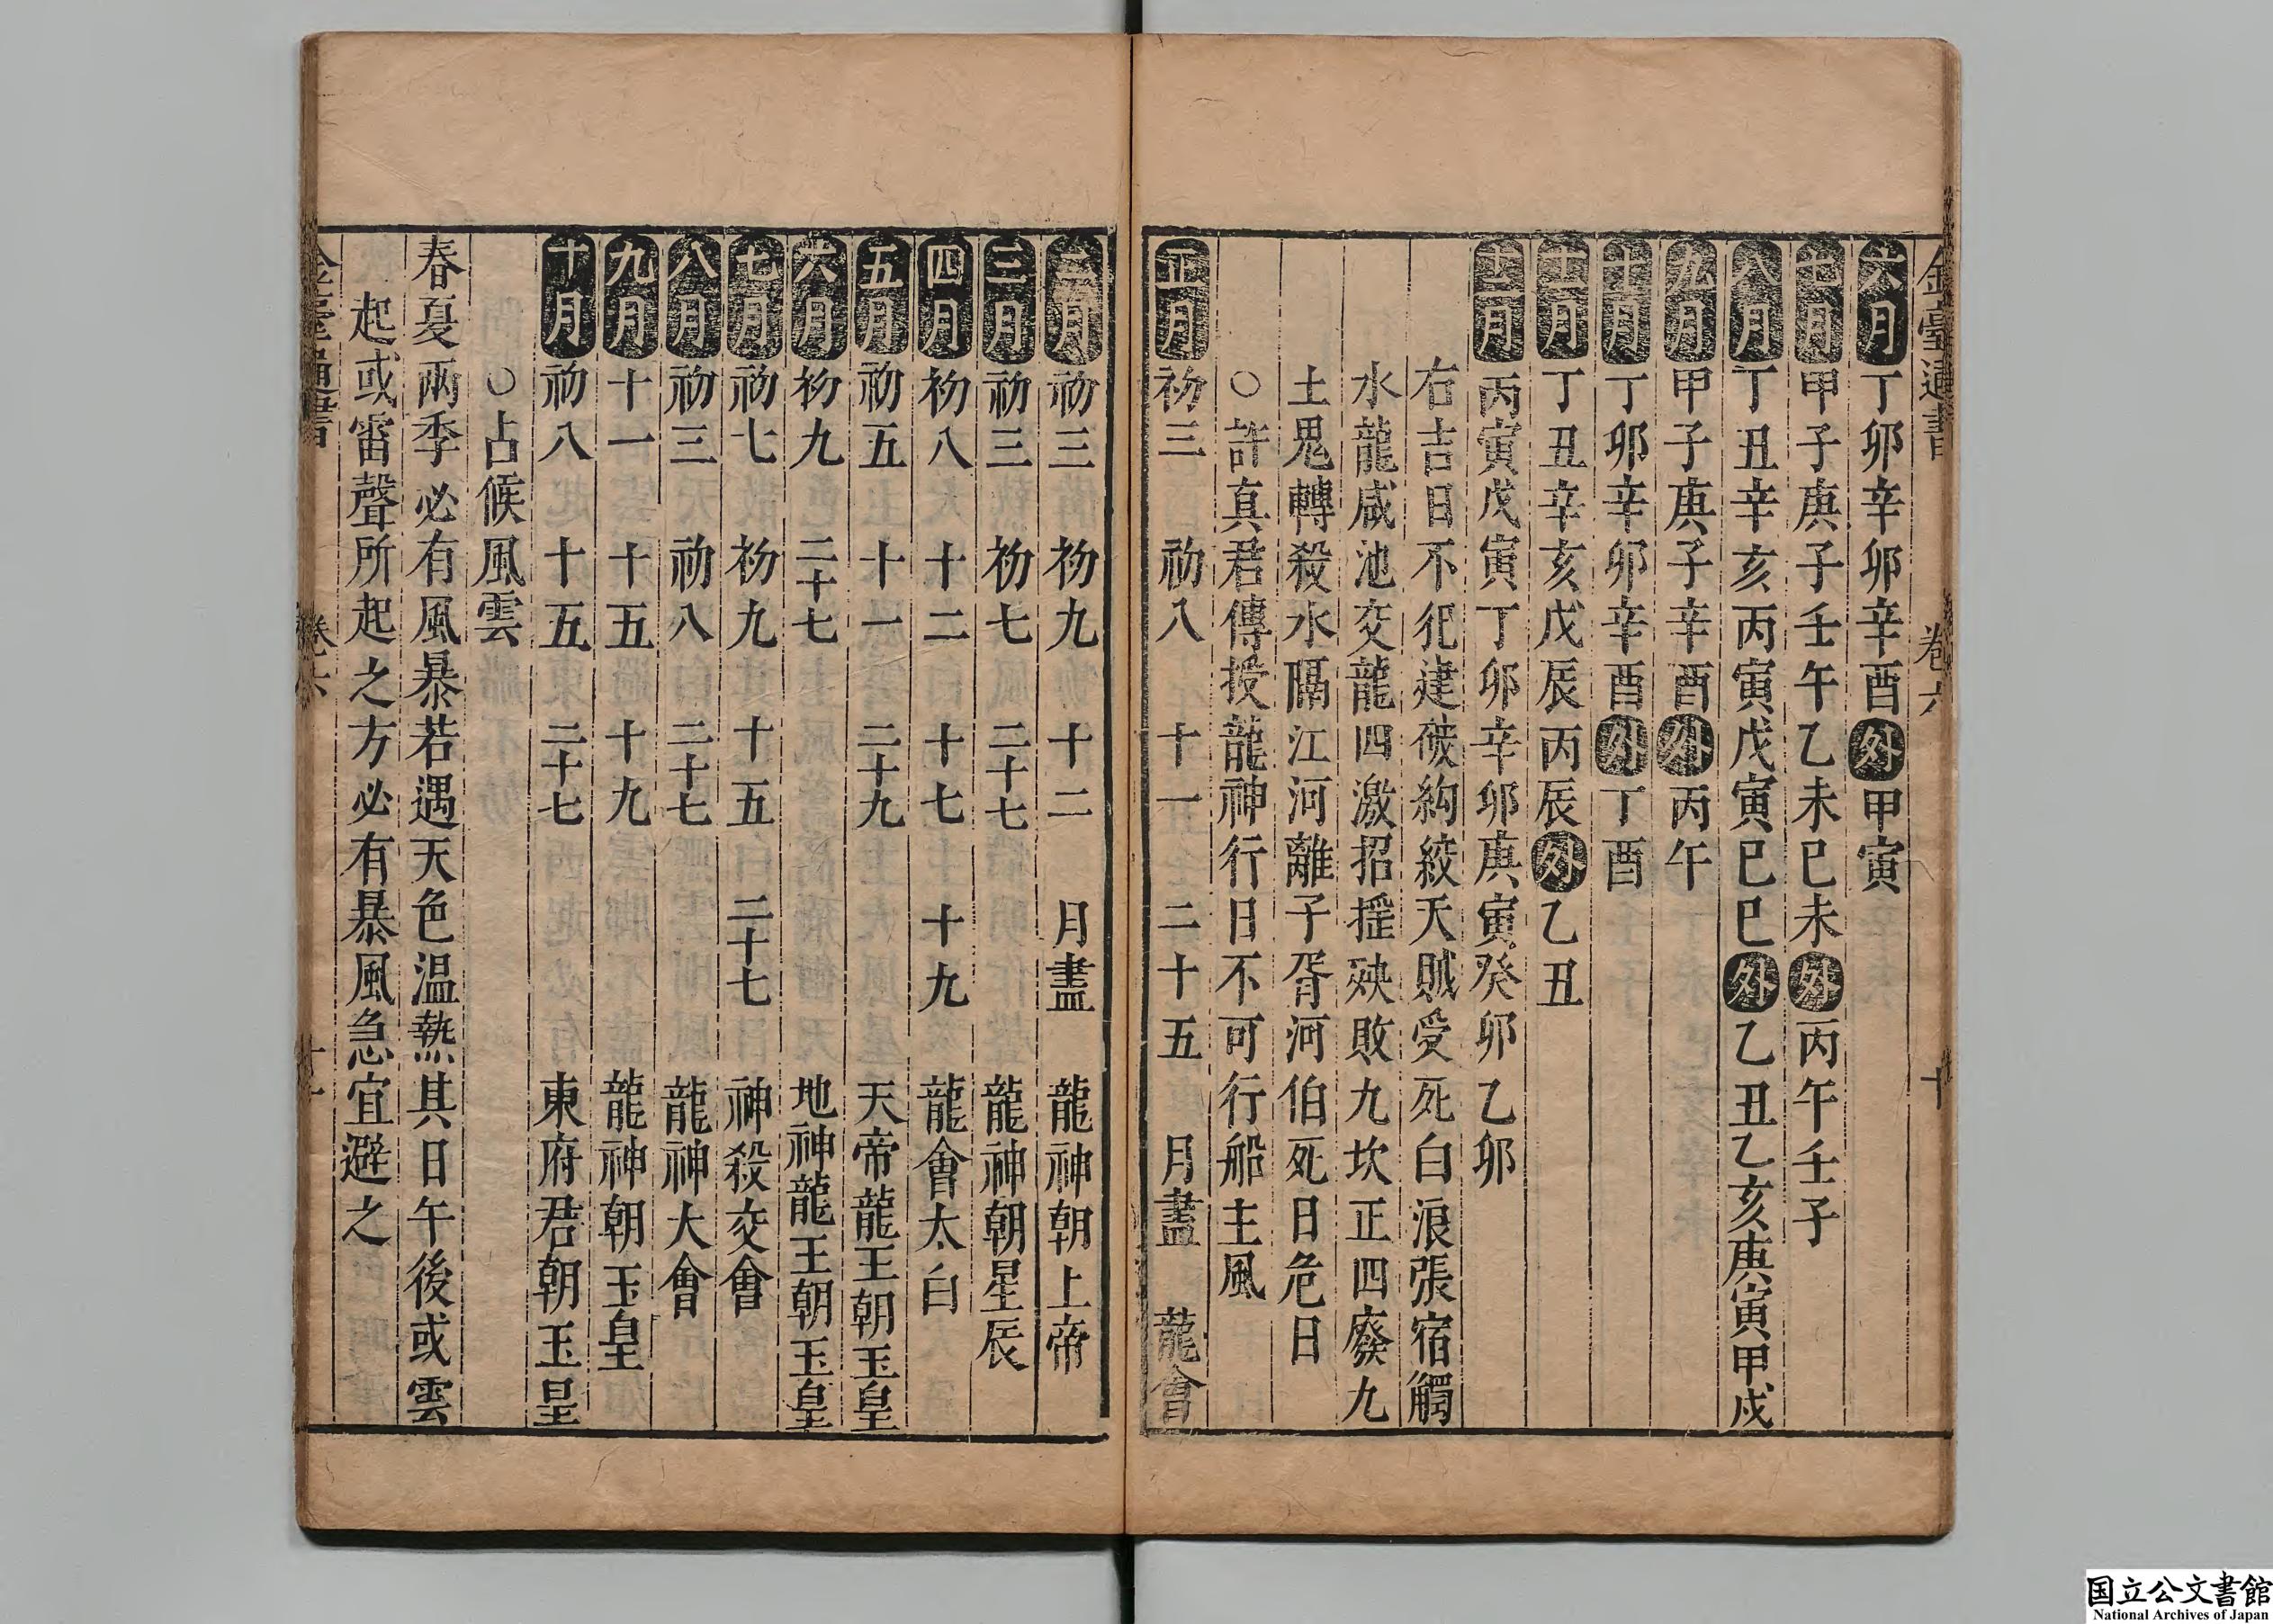 金臺通書 卷六 十
六月 丁卯辛卯辛酉外甲寅
七月 甲子庚子壬午乙未巳未外丙午壬子
八月 丁丑辛亥丙寅戊寅巳巳外乙丑乙亥庚寅甲戌
九月 甲子庚子辛酉外丙午
十月 丁卯辛卯辛酉外丁酉
十一月 丁丑辛亥戊辰丙辰外乙丑
十二月 丙寅戊寅丁卯辛卯庚寅癸卯乙卯
右吉日不犯建破絇絞天賊受死白浪張宿觸
水龍咸池交龍四激招摇殃敗九坎正四廢九
土鬼轉殺水隔江河離子胥河伯死日危日
○許真君傳授龍神行日不可行船主風
正月 初三 初八 十一 二十五 月盡 龍會
二月 初三 初九 十二 月盡 龍神朝上帝
三月 初三 初七 二十七 龍神朝星辰
四月 初八 十二 十七 十九 龍會太白
五月 初五 十一 二十九 天帝龍王朝玉皇
六月 初九 二十七 地神龍王朝玉皇
七月 初七 初九 十五 二十七 神殺交會
八月 初三 初八 二十七 龍神大會
九月 十一 十五 十九 龍神朝玉皇
十月 初八 十五 二十七 東府君朝玉皇
○占候風雲
春夏兩季必有風暴若遇天色温熱其日午後或雲
起或雷聲所起之方必有暴風急宜避之
金臺通書 卷六 十一
国立公文書館
National Archives of Japan